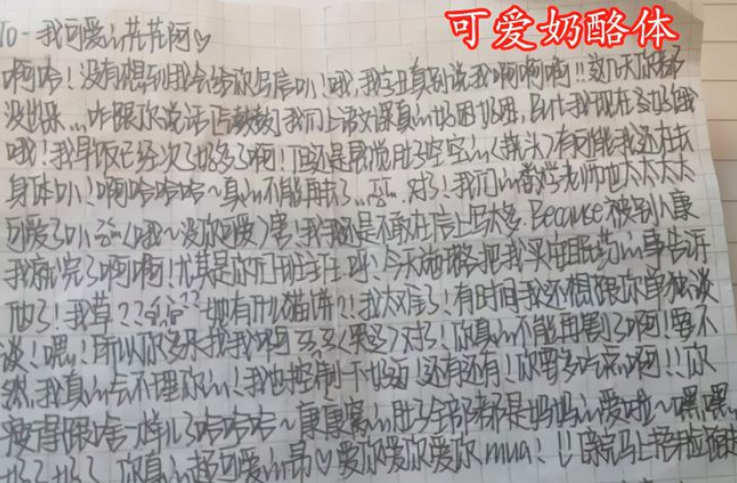 可爱奶酪体
TO-我可爱的花花阿♡
啊哈！没有想到我会给你写信叭！哦，我字丑真别说我啊啊啊!!这几天你都
没理我…咋跟你说话 我们上语文课真的好困好困，and我现在好饿
哦！我早饭已经次了好多了啊！但还是感觉肚子空空的(歪头)有可能我还在长
身体叭！啊哈哈哈~真的不能再长了…对了！我们的老师也太太太太
可爱了叭(哦~没你可爱)害！我还是不敢在信上写太多.Because被别人康
我就完了啊啊！尤其是你们班主任.哼今天把我买安眠药的事告诉
他了！我草??她有什么猫饼??我太难了！有时间我还想跟你单独谈
谈！嘿！所以你多来找我啊(哭)对了！你真的不能再了啊！要不
然，我真的会不理你的！我也控制下好嘛！还有还有！你要多吃点啊!!你
瘦得跟啥一样儿了哈哈哈~康康窝的肚子全部都是妈妈的爱啦~嘿嘿，
好了好了 你真的超可爱的昂♡爱你爱你爱你mua!!!